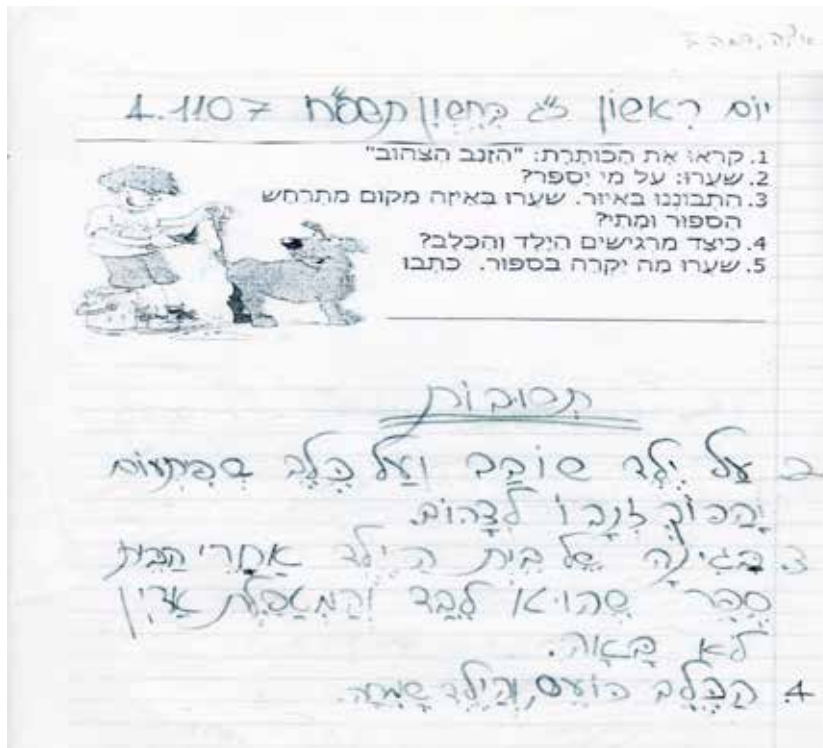 יוֹם רִאשׁוֹן כ"ג בְּחֶשְׁוָן תשס"ח 4.1107
1. קראו את הכותרת: "הזנב הצהוב"
2. שערו: על מי יסופר?
3. התבוננו באיור. שערו באיזה מקום מתרחש
הסיפור ומתי?
4. כיצד מרגישים הילד והכלב?
5. שערו מה יקרה בספור. כתבו
תְּשׁוּבוֹת
עַל יֶלֶד שׁוֹבָב וְעַל כֶּלֶב שֶׁפִּתְאוֹם
זְנָבוֹ לְצָהוֹב.
3. בַּגִינָה שֶׁל בֵּית הַיֶלֶד אַחֲרֵי הַבֵּית
סֵפֶר שֶׁהוּא לְבַד וְהַמְטַפֶּלֶת
לֹא בָּאָה.
4. הַכֶּלֶב כּוֹעֵס, וְהַיֶלֶד שָׂמֵחַ.